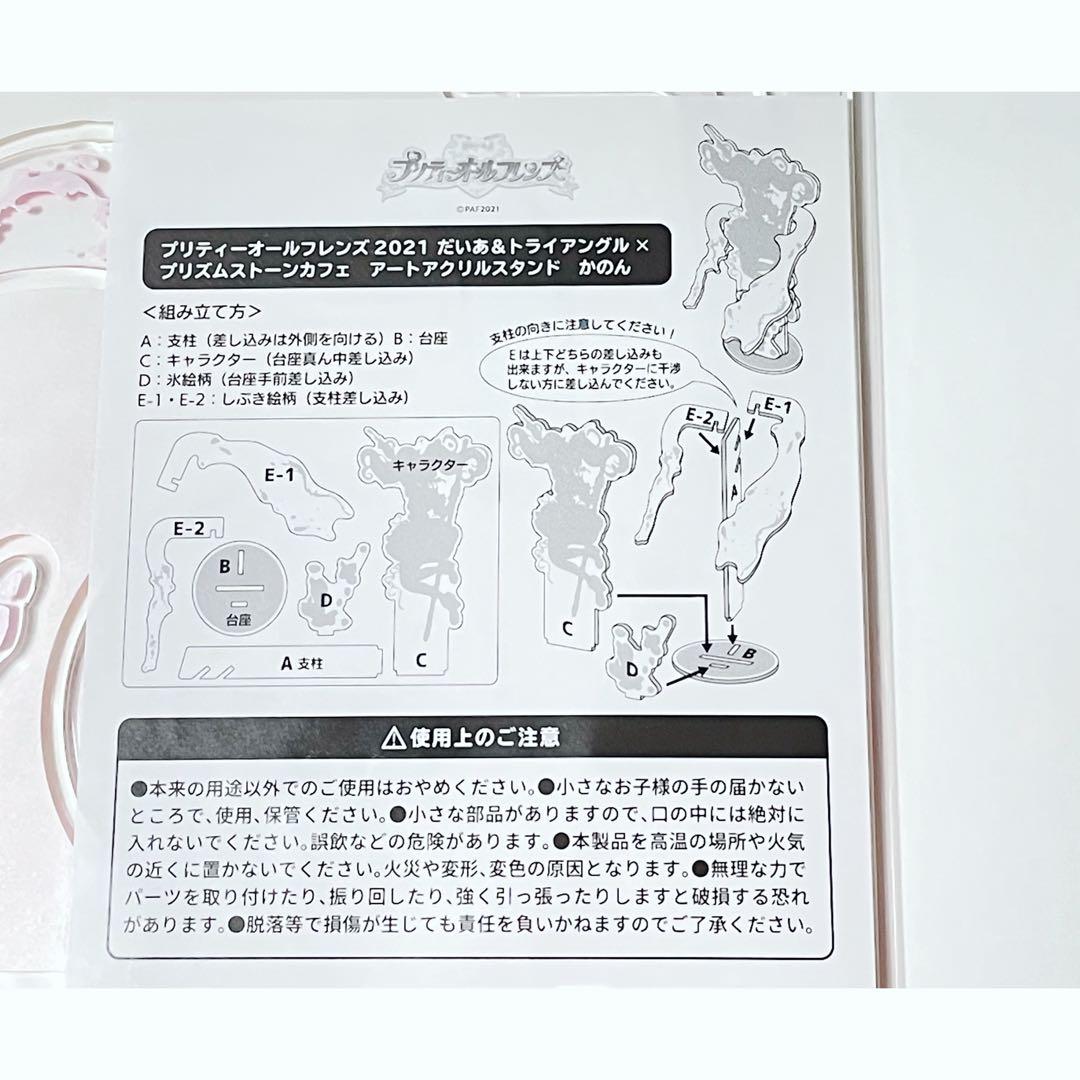 プリティーオールフレンズ
©PAF2021
プリティーオールフレンズ2021 だいあ&トライアングル×
プリズムストーンカフェ　アートアクリルスタンド　かのん
＜組み立て方＞
A：支柱（差し込みは外側を向ける）B：台座
C：キャラクター（台座真ん中差し込み）
D：氷絵柄（台座手前差し込み）
E-1・E-2：しぶき絵柄（支柱差し込み）
支柱の向きに注意してください！
Eは上下どちらの差し込みも
出来ますが、キャラクターに干渉
しない方に差し込んでください。
E-1
E-2
B
台座
D
A 支柱
キャラクター
C
E-2
E-1
A
C
D
B
⚠使用上のご注意
●本来の用途以外でのご使用はおやめください。●小さなお子様の手の届かない
ところで、使用、保管ください。●小さな部品がありますので、口の中には絶対に
入れないでください。誤飲などの危険があります。●本製品を高温の場所や火気
の近くに置かないでください。火災や変形、変色の原因となります。●無理な力で
パーツを取り付けたり、振り回したり、強く引っ張ったりしますと破損する恐れ
があります。●脱落等で損傷が生じても責任を負いかねますのでご了承ください。